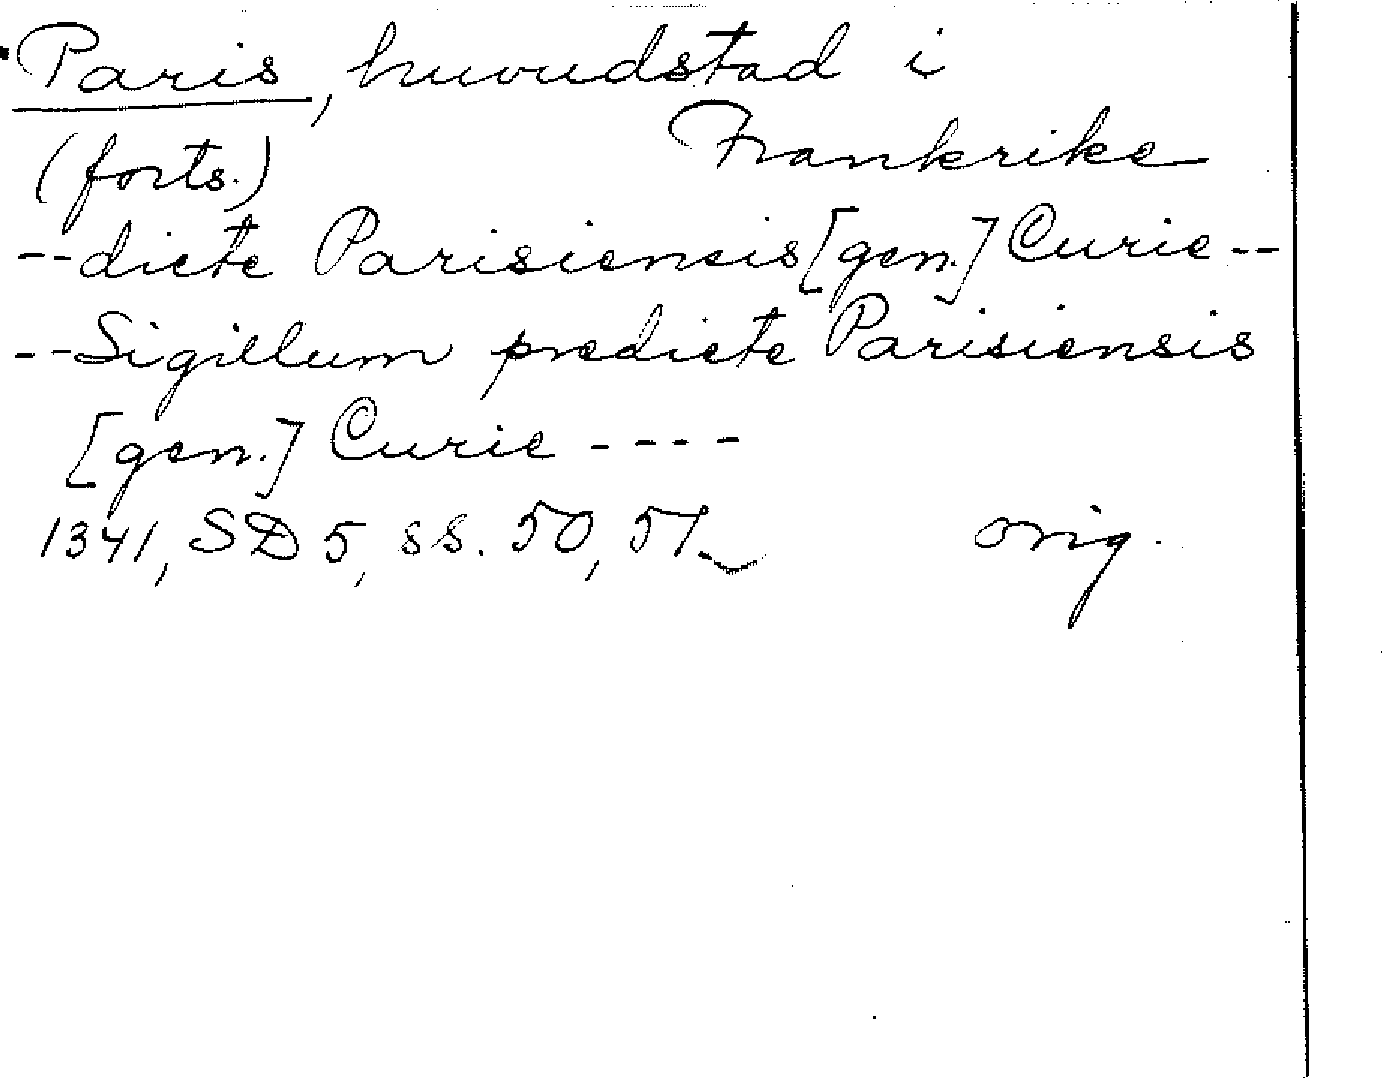 Paris, huvudstad i
Frankrike
(forts.)
--dicte Parisiensis [gen.] Curie--
--Sigillum predicte Parisiensis
[gen.] Curie ----
1341, SD 5, ss. 50, 51 orig.